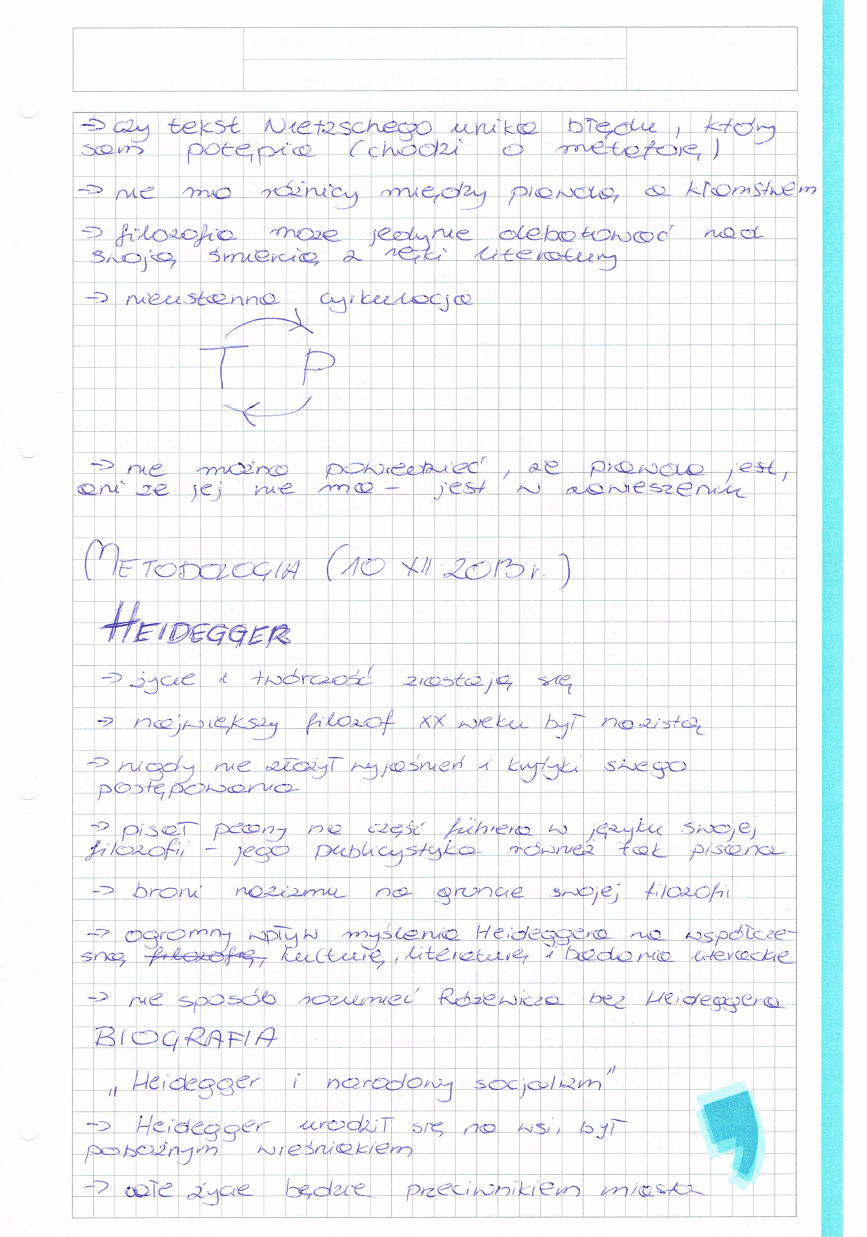 → czy tekst Nietzschego unika błędu, który
sam potępia (chodzi o metaforę)
→ nie ma różnicy między prawdą, a kłamstwem
→ filozofia może jedynie debatować nad
swoją śmiercią z ręki literatury
→ nieustanna cyrkulacja
T P
→ nie można powiedzieć, że prawda jest,
ani że jej nie ma – jest w zawieszeniu
METODOLOGIA (10 XII 2013 r.)
HEIDEGGER
→ życie i twórczość zrastają się
→ największy filozof XX wieku był nazistą
→ nigdy nie złożył wyjaśnień i krytyki swego
postępowania
→ pisał peany na cześć führera w języku swojej
filozofii – jego publicystyka również tak pisana
→ broni nazizmu na gruncie swojej filozofii
→ ogromny wpływ myślenia Heideggera na współcze-
sną filozofię, kulturę, literaturę i badania literackie
→ nie sposób rozumieć Różewicza bez Heideggera
BIOGRAFIA
„Heidegger i narodowy socjalizm"
→ Heidegger urodził się na wsi, był
pobożnym wieśniakiem
→ całe życie będzie przeciwnikiem miasta